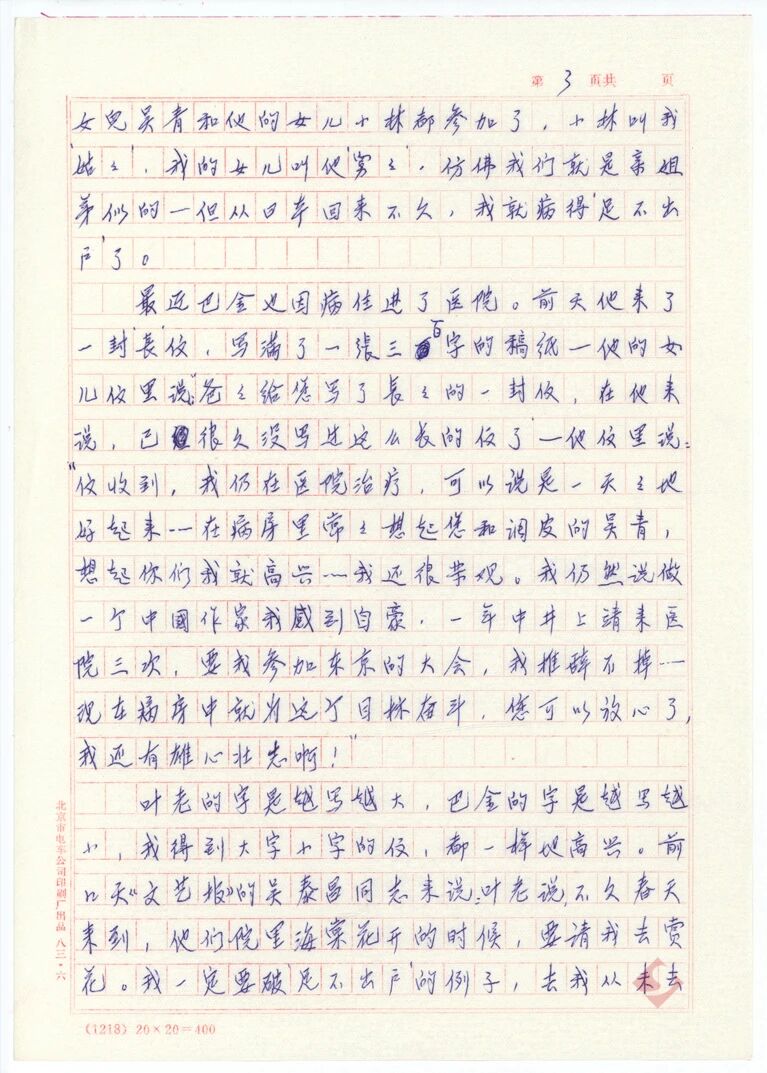 第 3 页共 页
女儿吴青和他的女儿小林都参加了,小林叫我
'姑〻',我的女儿叫他'舅〻',仿佛我们就是亲姐
弟似的—但从日本回来不久,我就病得'足不出
户'了。
最近巴金也因病住进了医院。前天他来了
一封'长'信,写满了一張三百字的稿纸—他的女
儿信里说:"爸〻给您写了長〻的一封信,在他来
说,已很久没写过这么长的信了"—他信里说:
"信收到,我仍在医院治疗,可以说是一天〻地
好起来……在病房里常〻想起您和调皮的吴青,
想起你们我就高兴……我还很乐观。我仍然说做
一个中國作家我感到自豪,一年中井上靖来医
院三次,要我参加东京的大会,我推辞不掉……
现在病房中就为这个目标奋斗,您可以放心了,
我还有雄心壮志啊!"
叶老的字是越写越大,巴金的字是越写越
小,我得到大字小字的信,都一样地高兴。前
几天《文艺报》的吴泰昌同志来说,叶老说,不久春天
来到,他们院里海棠花开的时候,要请我去赏
花。我一定要破'足不出户'的例子,去我从未去
北京市电车公司印刷厂出品 八三·六
(1218) 20×20=400